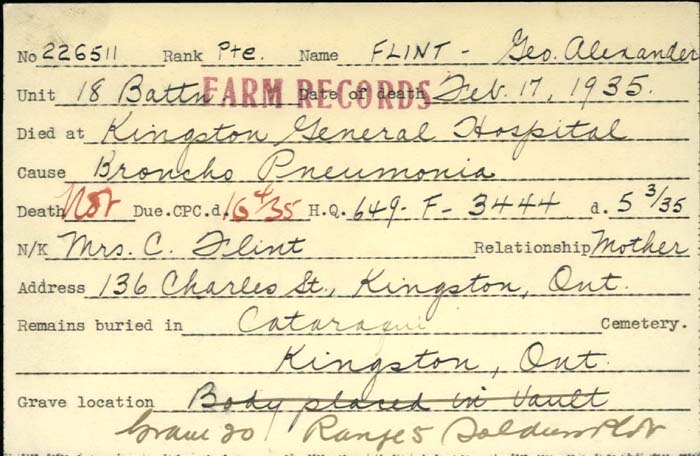 No 226511 Rank Pte. Name FLINT - Geo. Alexander
Unit 18 Battn FARM RECORDS Date of death Feb. 17, 1935.
Died at Kingston General Hospital
Cause Broncho Pneumonia
Death Not Due.CPC.d. 16 4/35 H.Q. 649- F- 3444 d. 5 3/35
N/K Mrs. C. Flint Relationship Mother
Address 136 Charles St., Kingston, Ont.
Remains buried in Cataraqui Cemetery.
Kingston, Ont.
Grave location Body placed in Vault
Grave 20 Range 5 Soldiers Plot